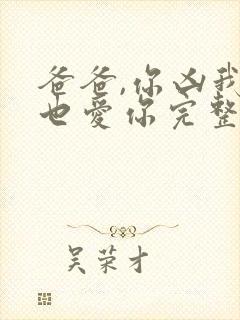 爸爸,你凶我
也爱你完整
吴荣才